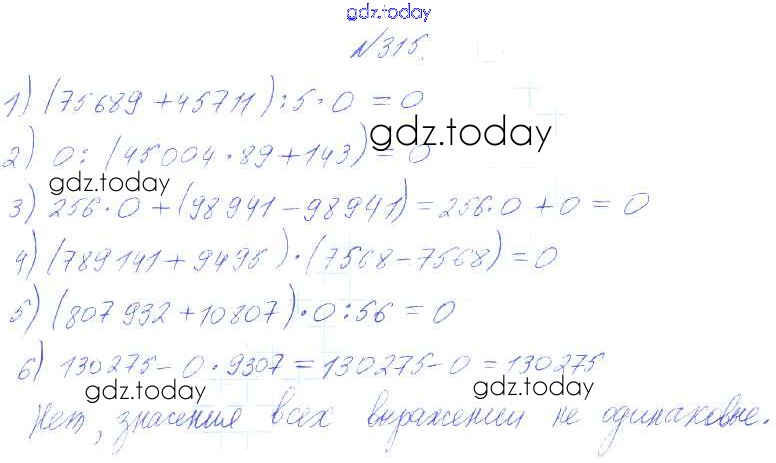 gdz.today
№315.
1) (75689+45711):5·0=0
gdz.today
2) 0:(45004·89+143)=0
gdz.today
3) 256·0+(98941-98941)=256·0+0=0
4) (789141+9495)·(7568-7568)=0
5) (807932+10807)·0:56=0
6) 130275-0·9307=130275-0=130275
gdz.today gdz.today
Нет, значения всех выражений не одинаковые.